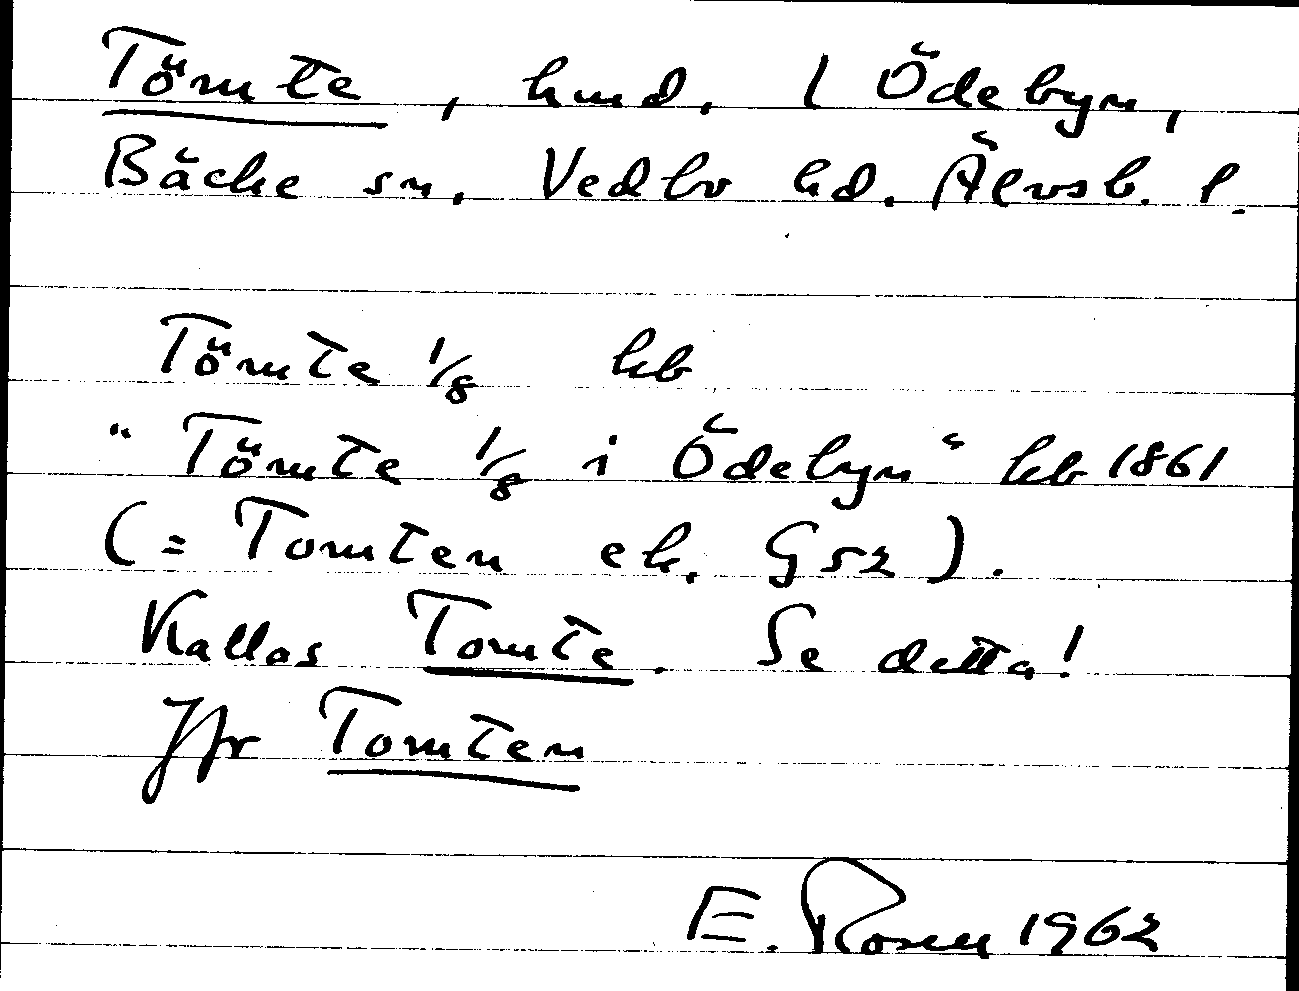 Tömte, hmd. l Ödebyn,
Bäcke sn, Vedbo hd. Älvsb. l.
Tömte 1/8 kb
"Tömte 1/8 i Ödebyn" kb 1861
(= Tomten ek. G52).
Kallas Tomte. Se detta!
Jfr Tomten
E. Rosen 1962